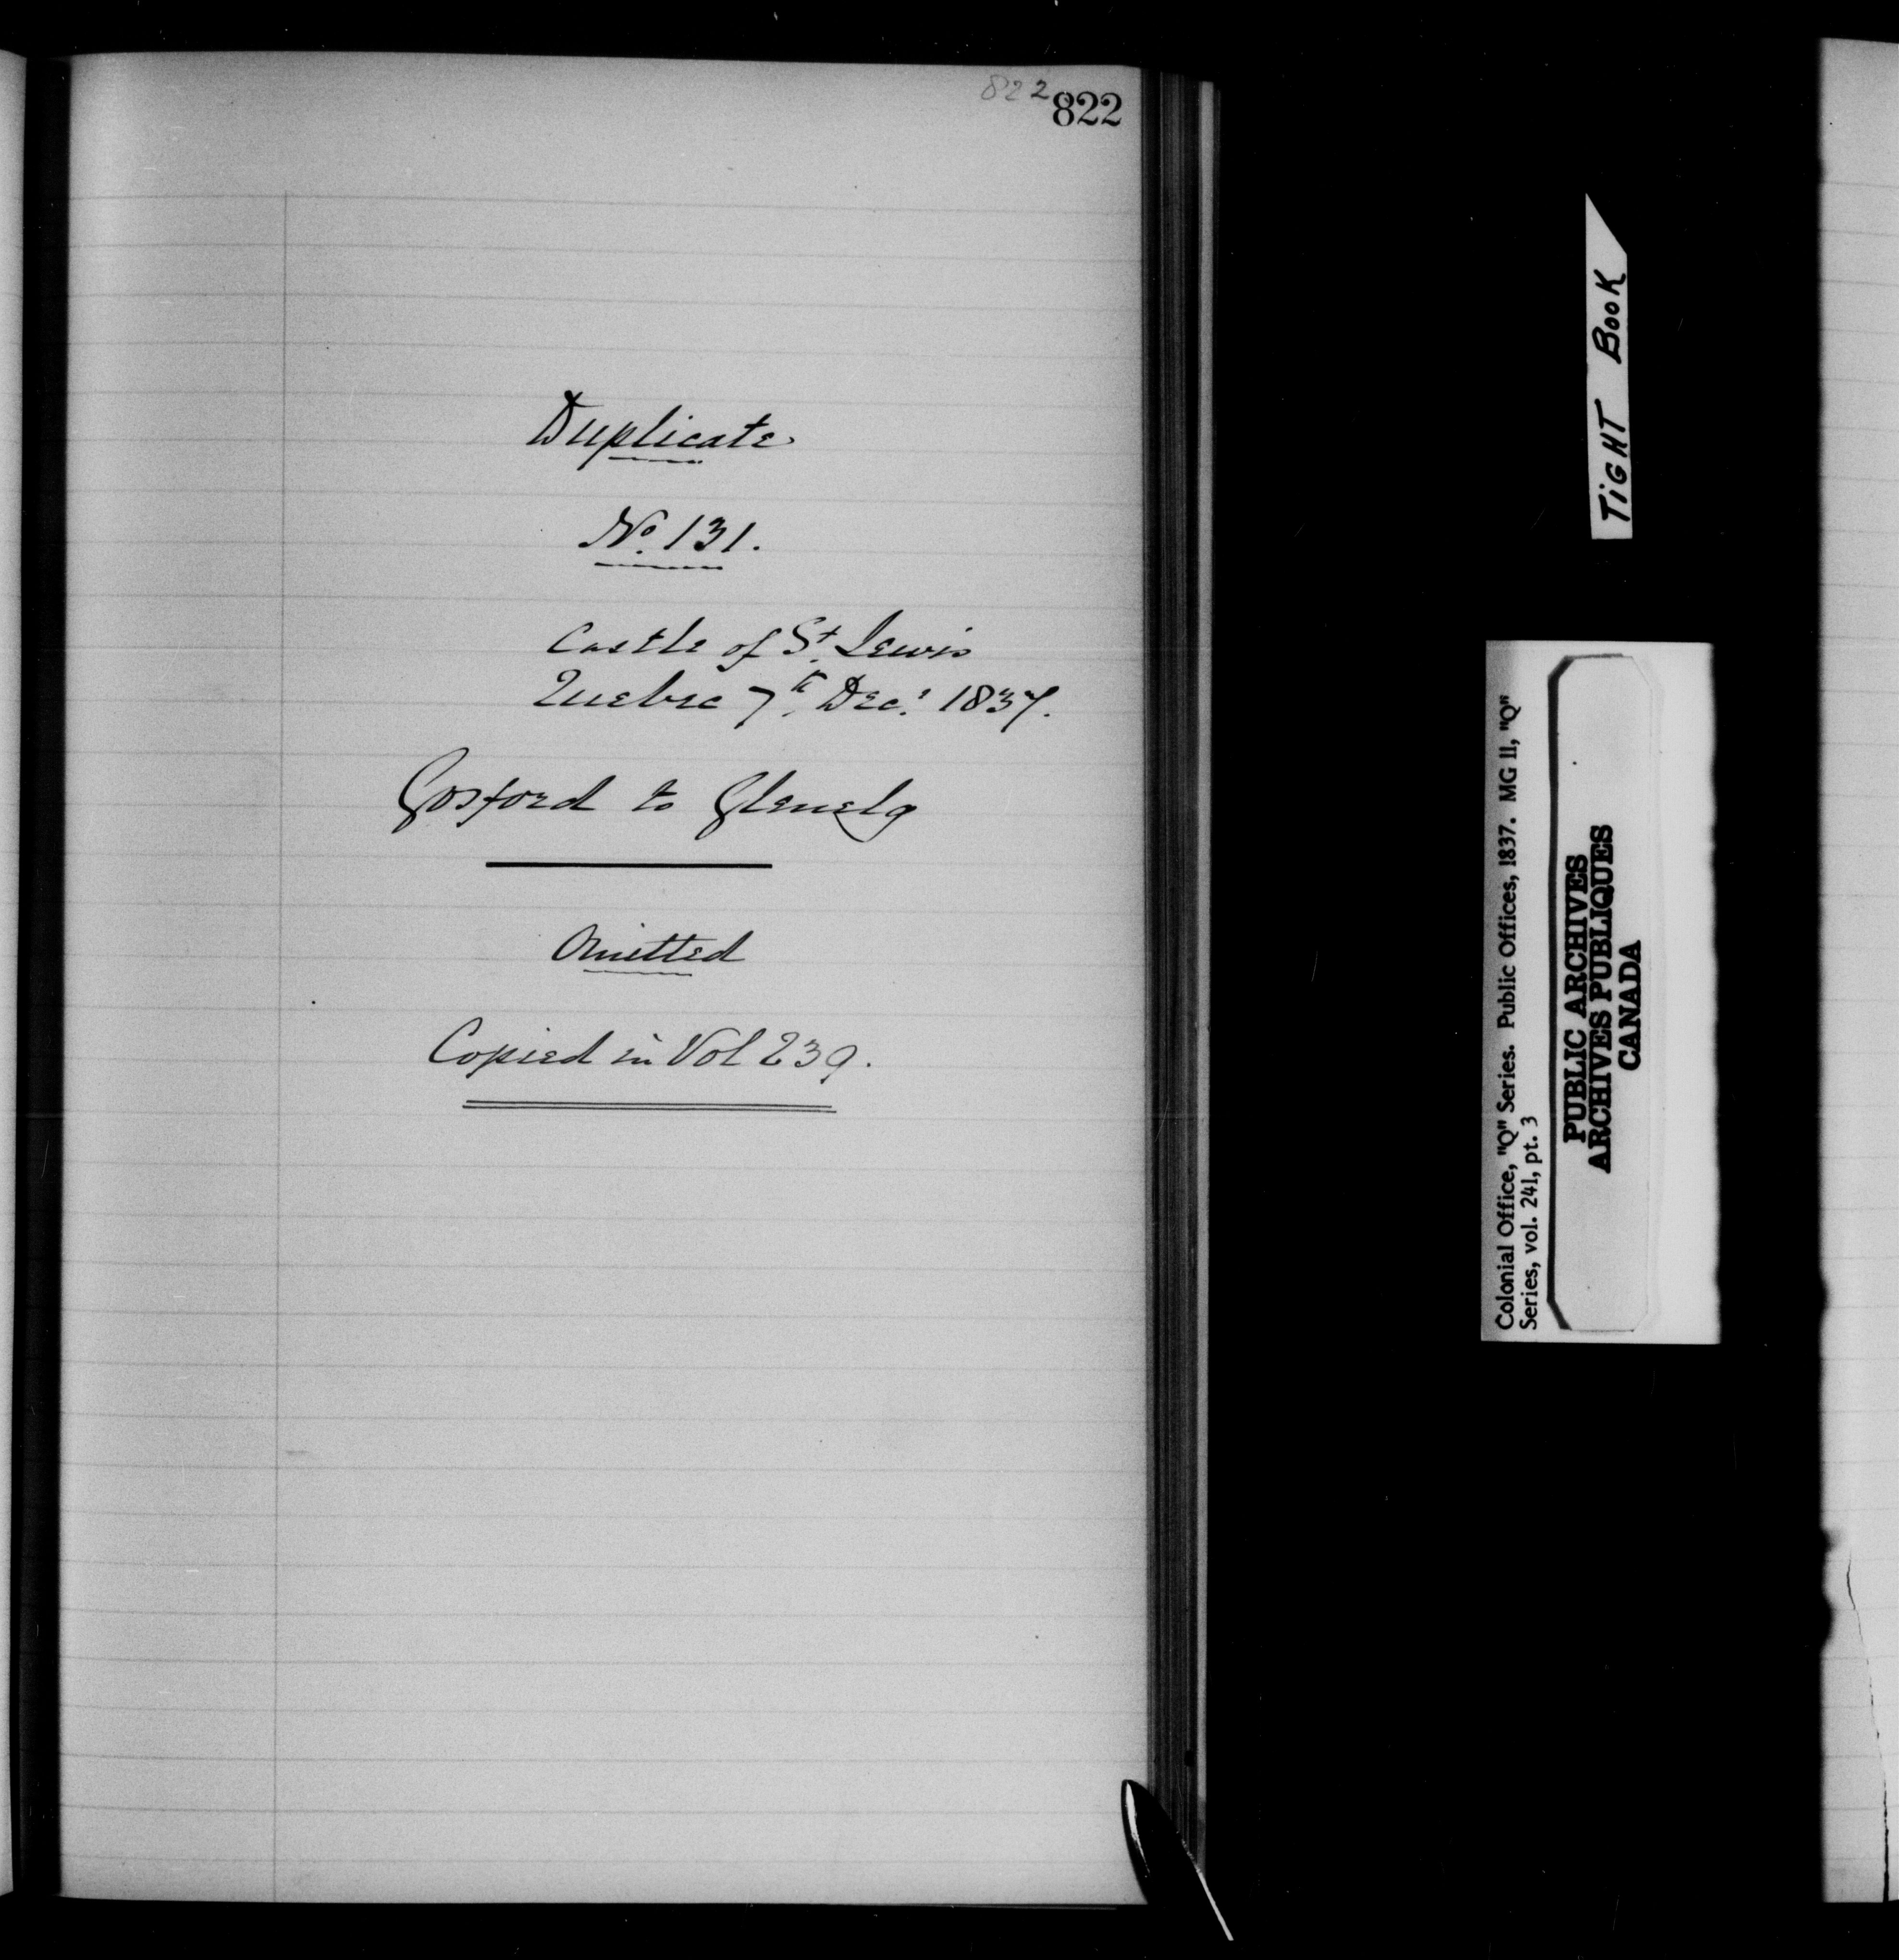 822 822
Duplicate
No. 131.
Castle of St. Lewis
Quebec 7th Decr 1837.
Gosford to Glenelg
Omitted
Copied in Vol 239.
TiGHT BooK
Colonial Office, "Q" Series. Public Offices, 1837. MG 11, "Q"
Series, vol. 241, pt. 3
PUBLIC ARCHIVES
ARCHIVES PUBLIQUES
CANADA